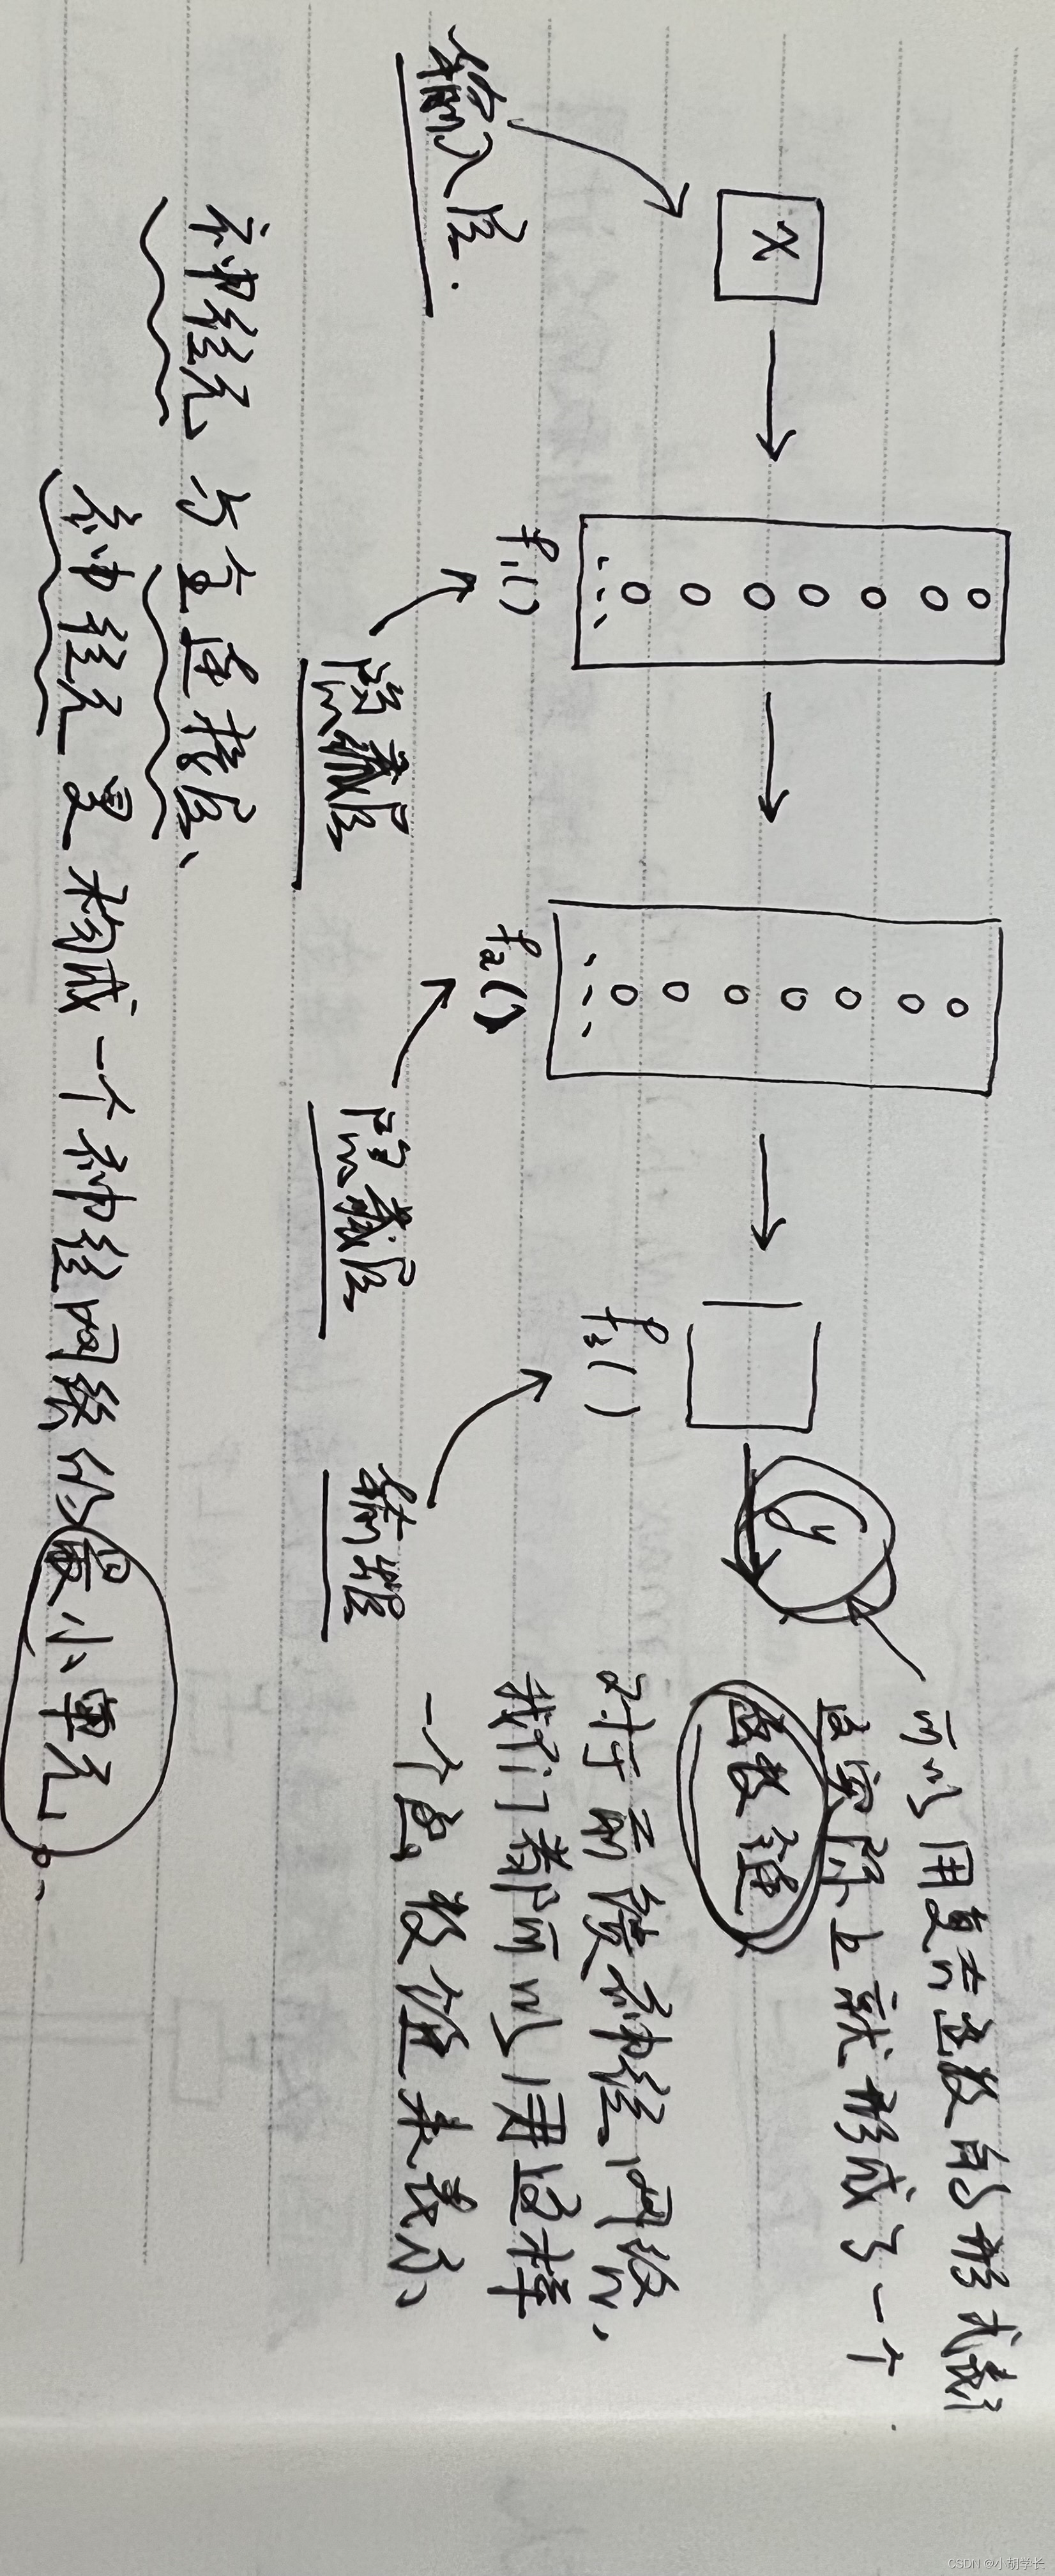 x
f₁()
f₂()
f₃()
y
输入层.
隐藏层
隐藏层
输出层
可以用复合函数的形式表示
且实际上就形成了一个
函数链
对于前馈神经网络、
我们都可以用这样
一个函数链来表示、
神经元与全连接层、
神经元是构成一个神经网络的最小单元。
CSDN @小胡学长